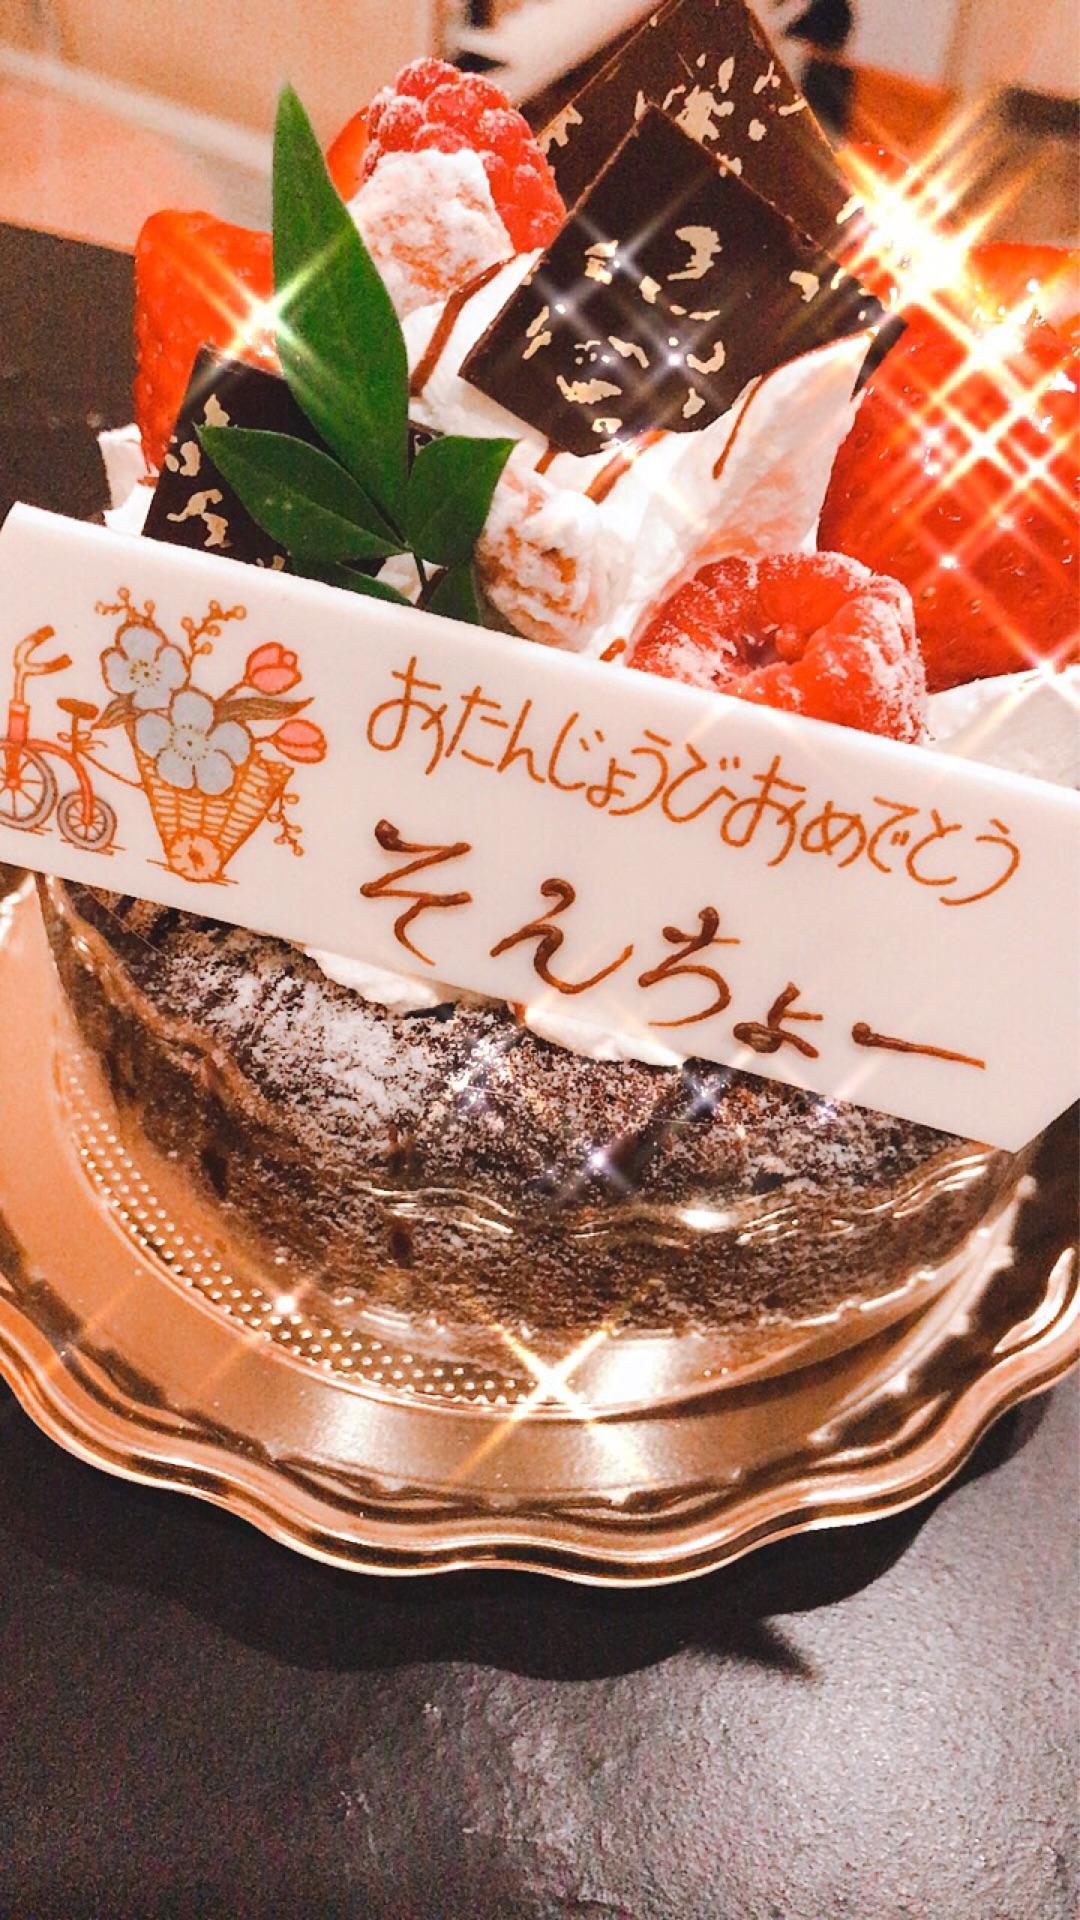 おたんじょうびおめでとう
そんちょー